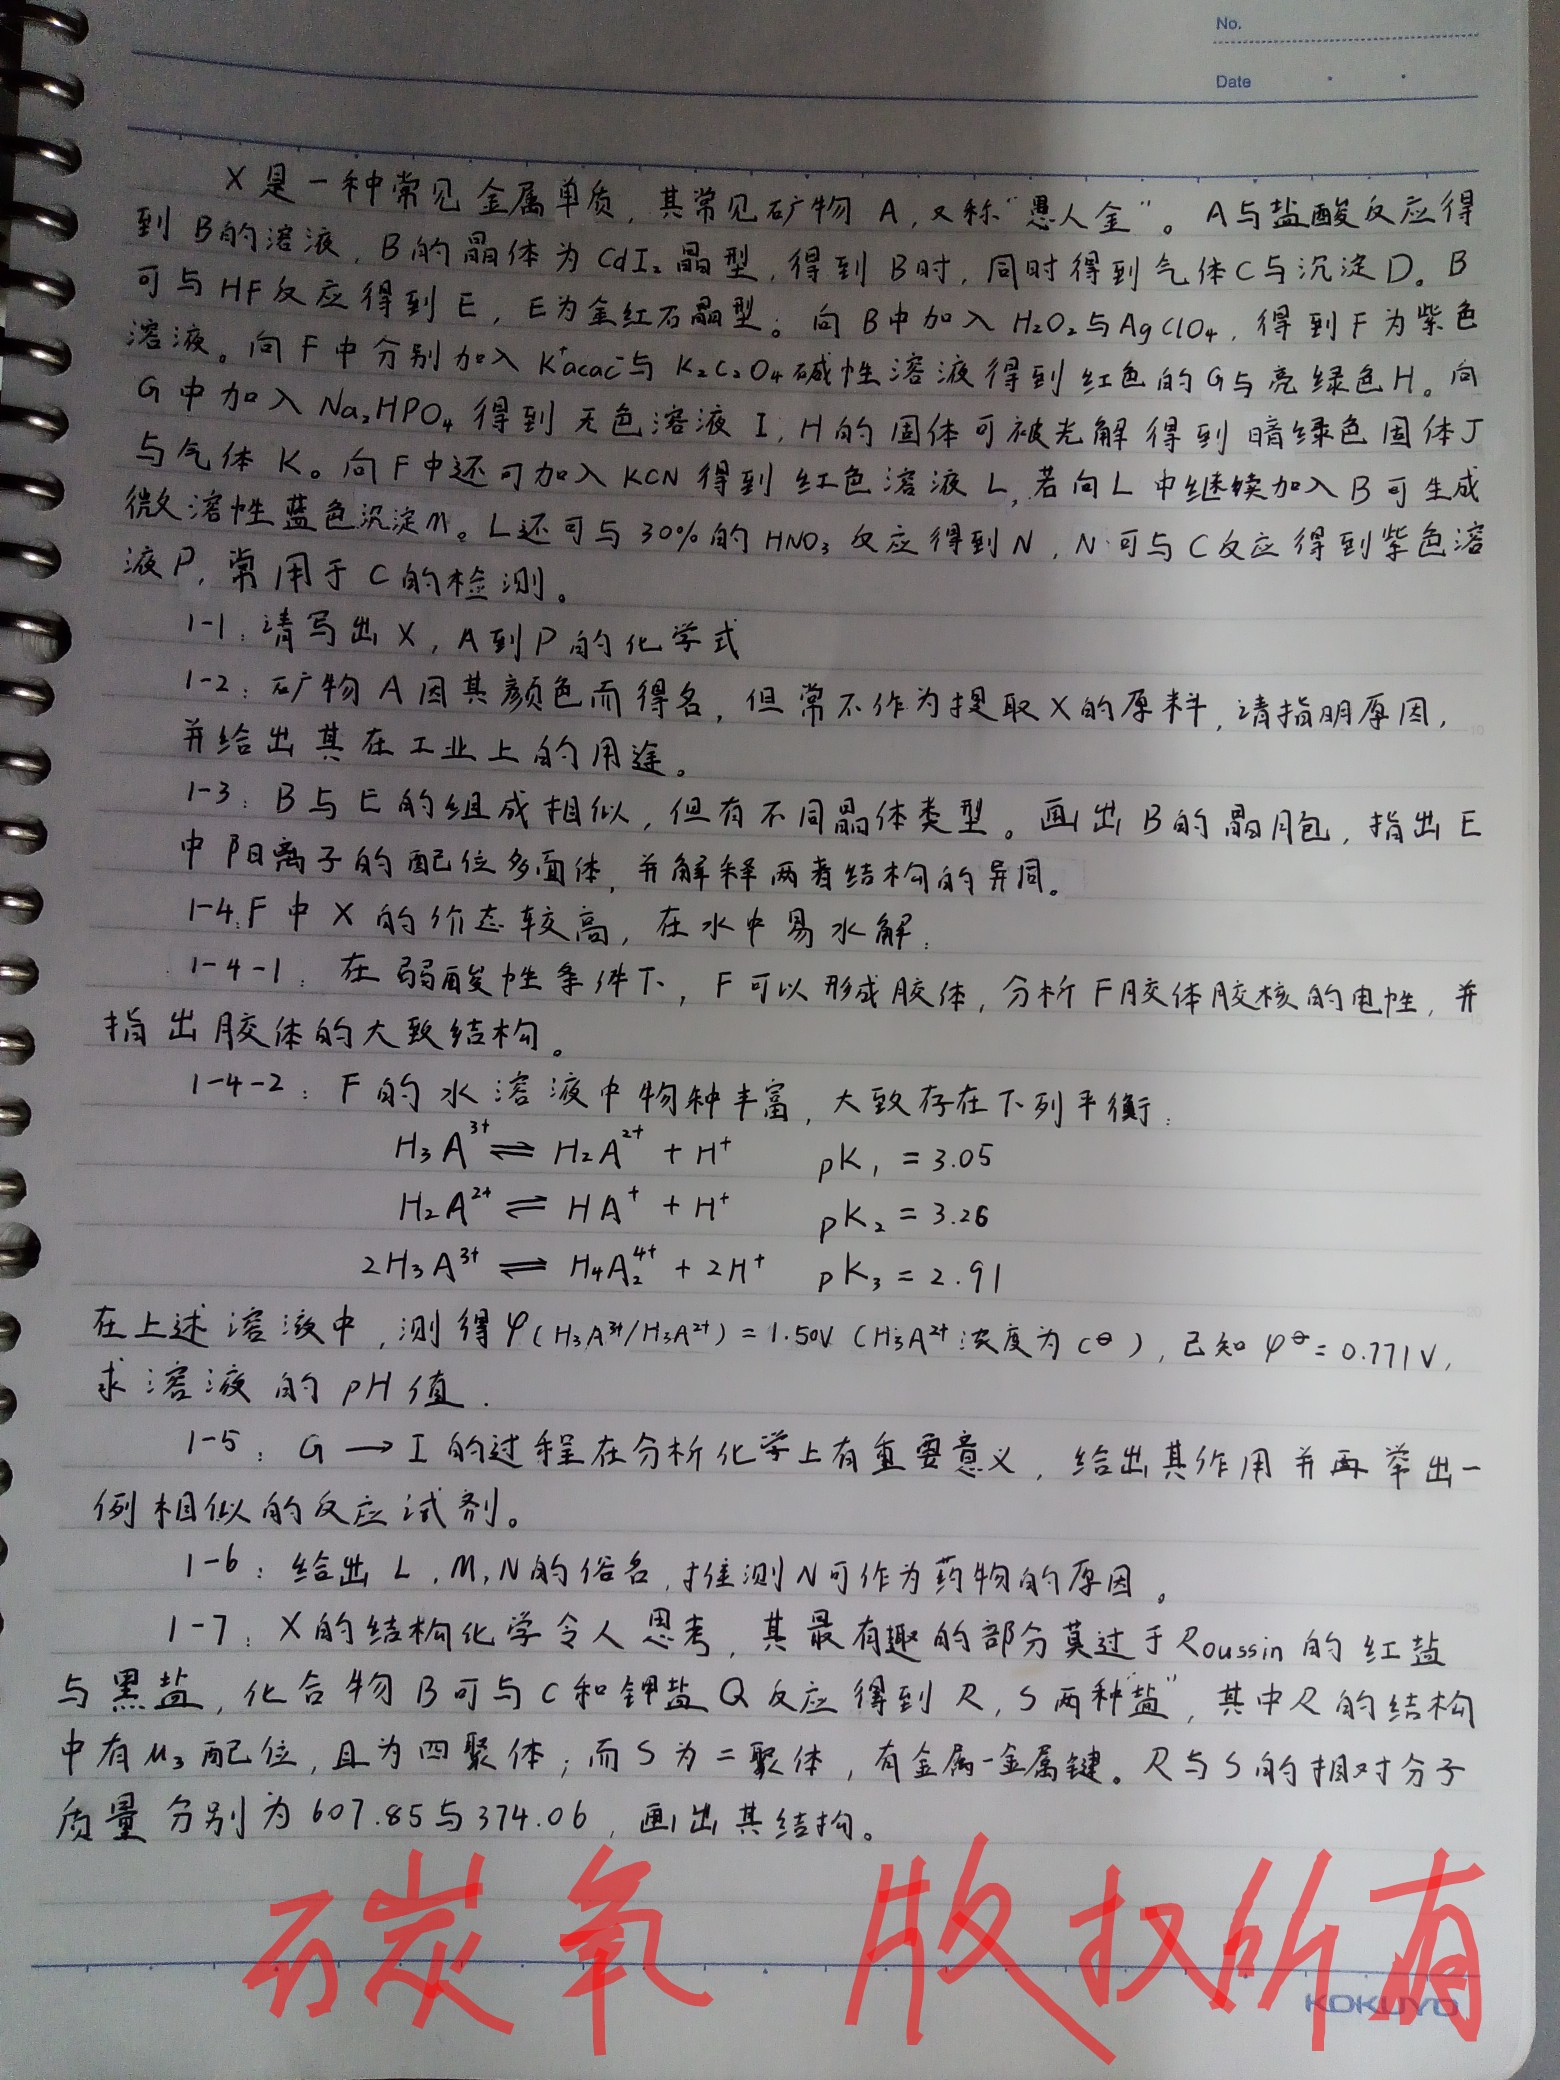 No.
Date
X是一种常见金属单质,其常见矿物A,又称“愚人金”。A与盐酸反应得
到B的溶液,B的晶体为CdI₂晶型,得到B时,同时得到气体C与沉淀D。B
可与HF反应得到E,E为金红石晶型。向B中加入H₂O₂与AgClO₄,得到F为紫色
溶液。向F中分别加入K⁺acac⁻与K₂C₂O₄碱性溶液得到红色的G与亮绿色H。向
G中加入Na₂HPO₄得到无色溶液I,H的固体可被光解得到暗绿色固体J
与气体K。向F中还可加入KCN得到红色溶液L,若向L中继续加入B可生成
微溶性蓝色沉淀M。L还可与30%的HNO₃反应得到N,N可与C反应得到紫色溶
液P,常用于C的检测。
1-1:请写出X,A到P的化学式
1-2:矿物A因其颜色而得名,但常不作为提取X的原料,请指明原因,
并给出其在工业上的用途。
1-3:B与E的组成相似,但有不同晶体类型。画出B的晶胞,指出E
中阳离子的配位多面体,并解释两者结构的异同。
1-4:F中X的价态较高,在水中易水解:
1-4-1:在弱酸性条件下,F可以形成胶体,分析F胶体胶核的电性,并
指出胶体的大致结构。
1-4-2:F的水溶液中物种丰富,大致存在下列平衡:
H₃A³⁺ ⇌ H₂A²⁺ + H⁺ pK₁ = 3.05
H₂A²⁺ ⇌ HA⁺ + H⁺ pK₂ = 3.26
2H₃A³⁺ ⇌ H₄A₂⁴⁺ + 2H⁺ pK₃ = 2.91
在上述溶液中,测得φ(H₃A³⁺/H₃A²⁺) = 1.50V (H₃A²⁺浓度为c^θ),已知φ^θ = 0.771V,
求溶液的pH值.
1-5:G → I的过程在分析化学上有重要意义,给出其作用并再举出一
例相似的反应试剂。
1-6:给出L,M,N的俗名,推测N可作为药物的原因。
1-7:X的结构化学令人思考,其最有趣的部分莫过于Roussin的红盐
与黑盐,化合物B可与C和钾盐Q反应得到R,S两种“盐”,其中R的结构
中有μ₃配位,且为四聚体;而S为二聚体,有金属-金属键。R与S的相对分子
质量分别为607.85与374.06,画出其结构。
石炭氧 版权所有
KOKUYO